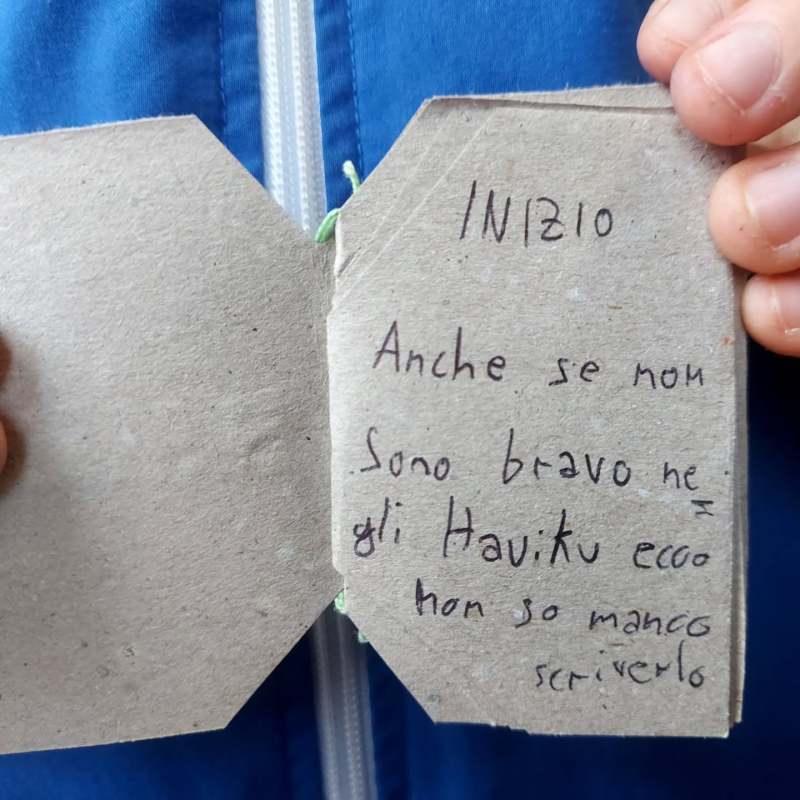 INIZIO
Anche se non
sono bravo ne=
gli Haviku ecco
non so manco
scriverlo